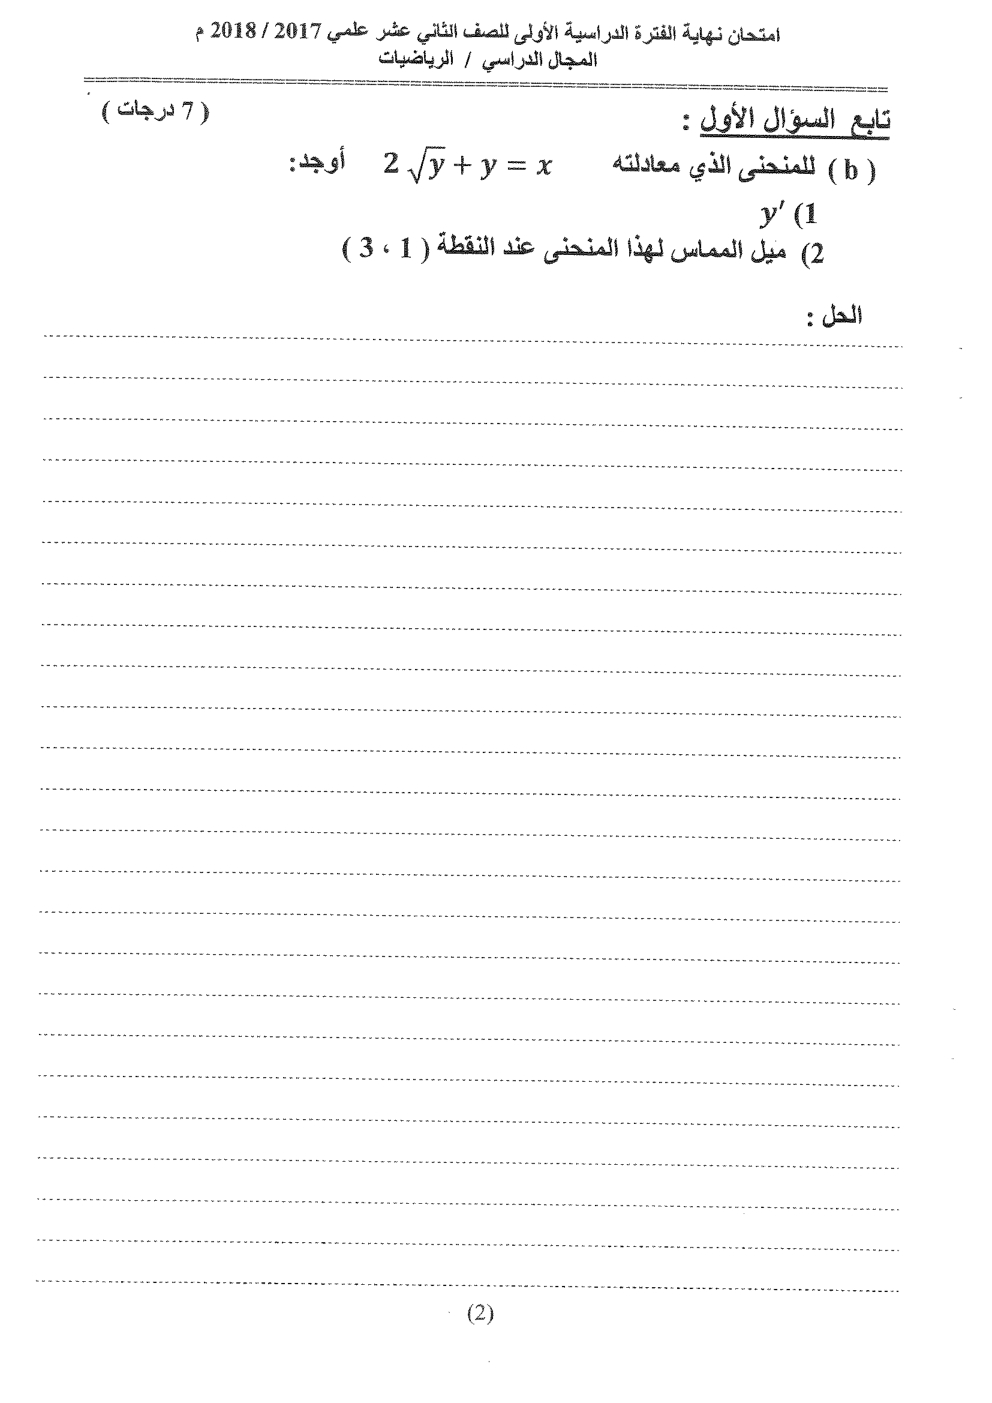 امتحان نهاية الفترة الدراسية الأولى للصف الثاني عشر علمي 2017 / 2018 م
المجال الدراسي / الرياضيات
تابع السؤال الأول : ( 7 درجات )
( b ) للمنحنى الذي معادلته 2 √y + y = x أوجد:
1) y′
2) ميل المماس لهذا المنحنى عند النقطة ( 3 ، 1 )
الحل :
(2)